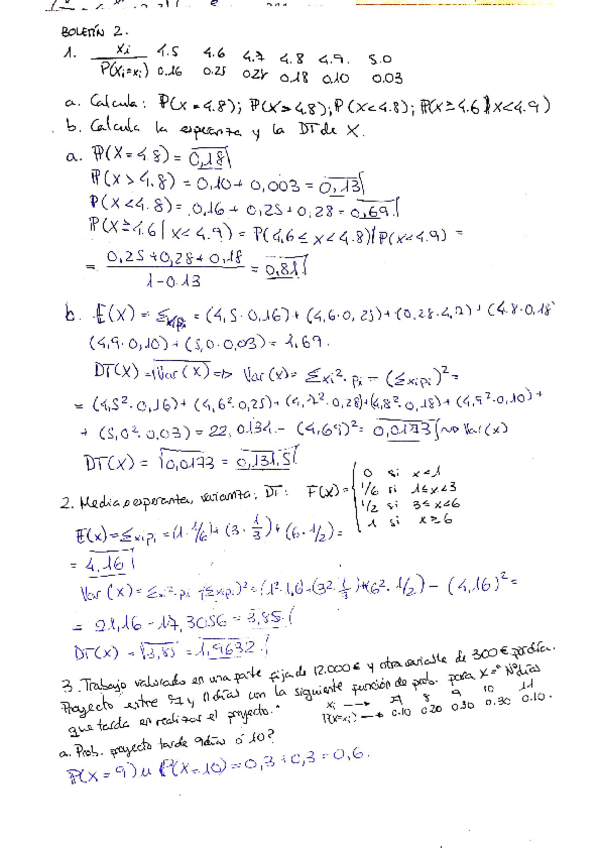 BOLETÍN 2.
1. Xi 4.5 4.6 4.7 4.8 4.9. 5.0
P(Xi=xi) 0.16 0.25 0.28 0.18 0.10 0.03
a. Calcula: P(X=4.8); P(X>4.8); P(X<4.8); P(X≥4.6|X<4.9)
b. Calcula la esperanza y la DT de X.
a. P(X=4.8) = 0,18
P(X>4.8) = 0,10+0,003 = 0,13
P(X<4.8) = 0,16+0,25+0,28 = 0,69
P(X≥4.6|X<4.9) = P(4,6≤x<4.8)/P(x<4.9) =
= 0,25+0,28+0,18 / 1-0.13 = 0,81
b. E(X) = Σxipi = (4,5·0,16)+(4,6·0,25)+(0,28·4,7)+(4.8·0,18
(4,9·0,10)+(5,0·0,03) = 4,69.
DT(X) = √Var(X) => Var(x) = Σxi²·pi - (Σxipi)² =
= (4,5²·0,16)+(4,6²·0,25)+(4,7²·0,28)+(4,8²·0,18)+(4,9²·0,10)+
+(5,0²·0,03) = 22,0134 - (4,69)² = 0,0173 Var(x)
DT(X) = √0,0173 = 0,1315
2. Media o esperanza, varianza, DT: F(x) = { 0 si x<1
1/6 si 1≤x<3
1/2 si 3≤x<6
1 si x≥6
E(x) = Σxipi = (1·1/6)+(3·1/3)+(6·1/2) =
= 4,16
Var(x) = Σxi²·pi - (Σxipi)² = (1²·1,6)+(3²·1/3)+(6²·1/2) - (4,16)² =
= 21,16 - 17,3056 = 3,85
DT(x) = √3,85 = 1,9632
3. Trabajo valorado en una parte fija de 12.000€ y otra variable de 300€ por día.
Proyecto entre 7 y 11 días con la siguiente función de prob. para X="Nº días
que tarda en realizar el proyecto."
xi → 7 8 9 10 11
P(X=xi) → 0.10 0.20 0.30 0.30 0.10.
a. Prob. proyecto tarde 9 días ó 10?
P(X=9) u P(X=10) = 0,3+0,3 = 0,6.